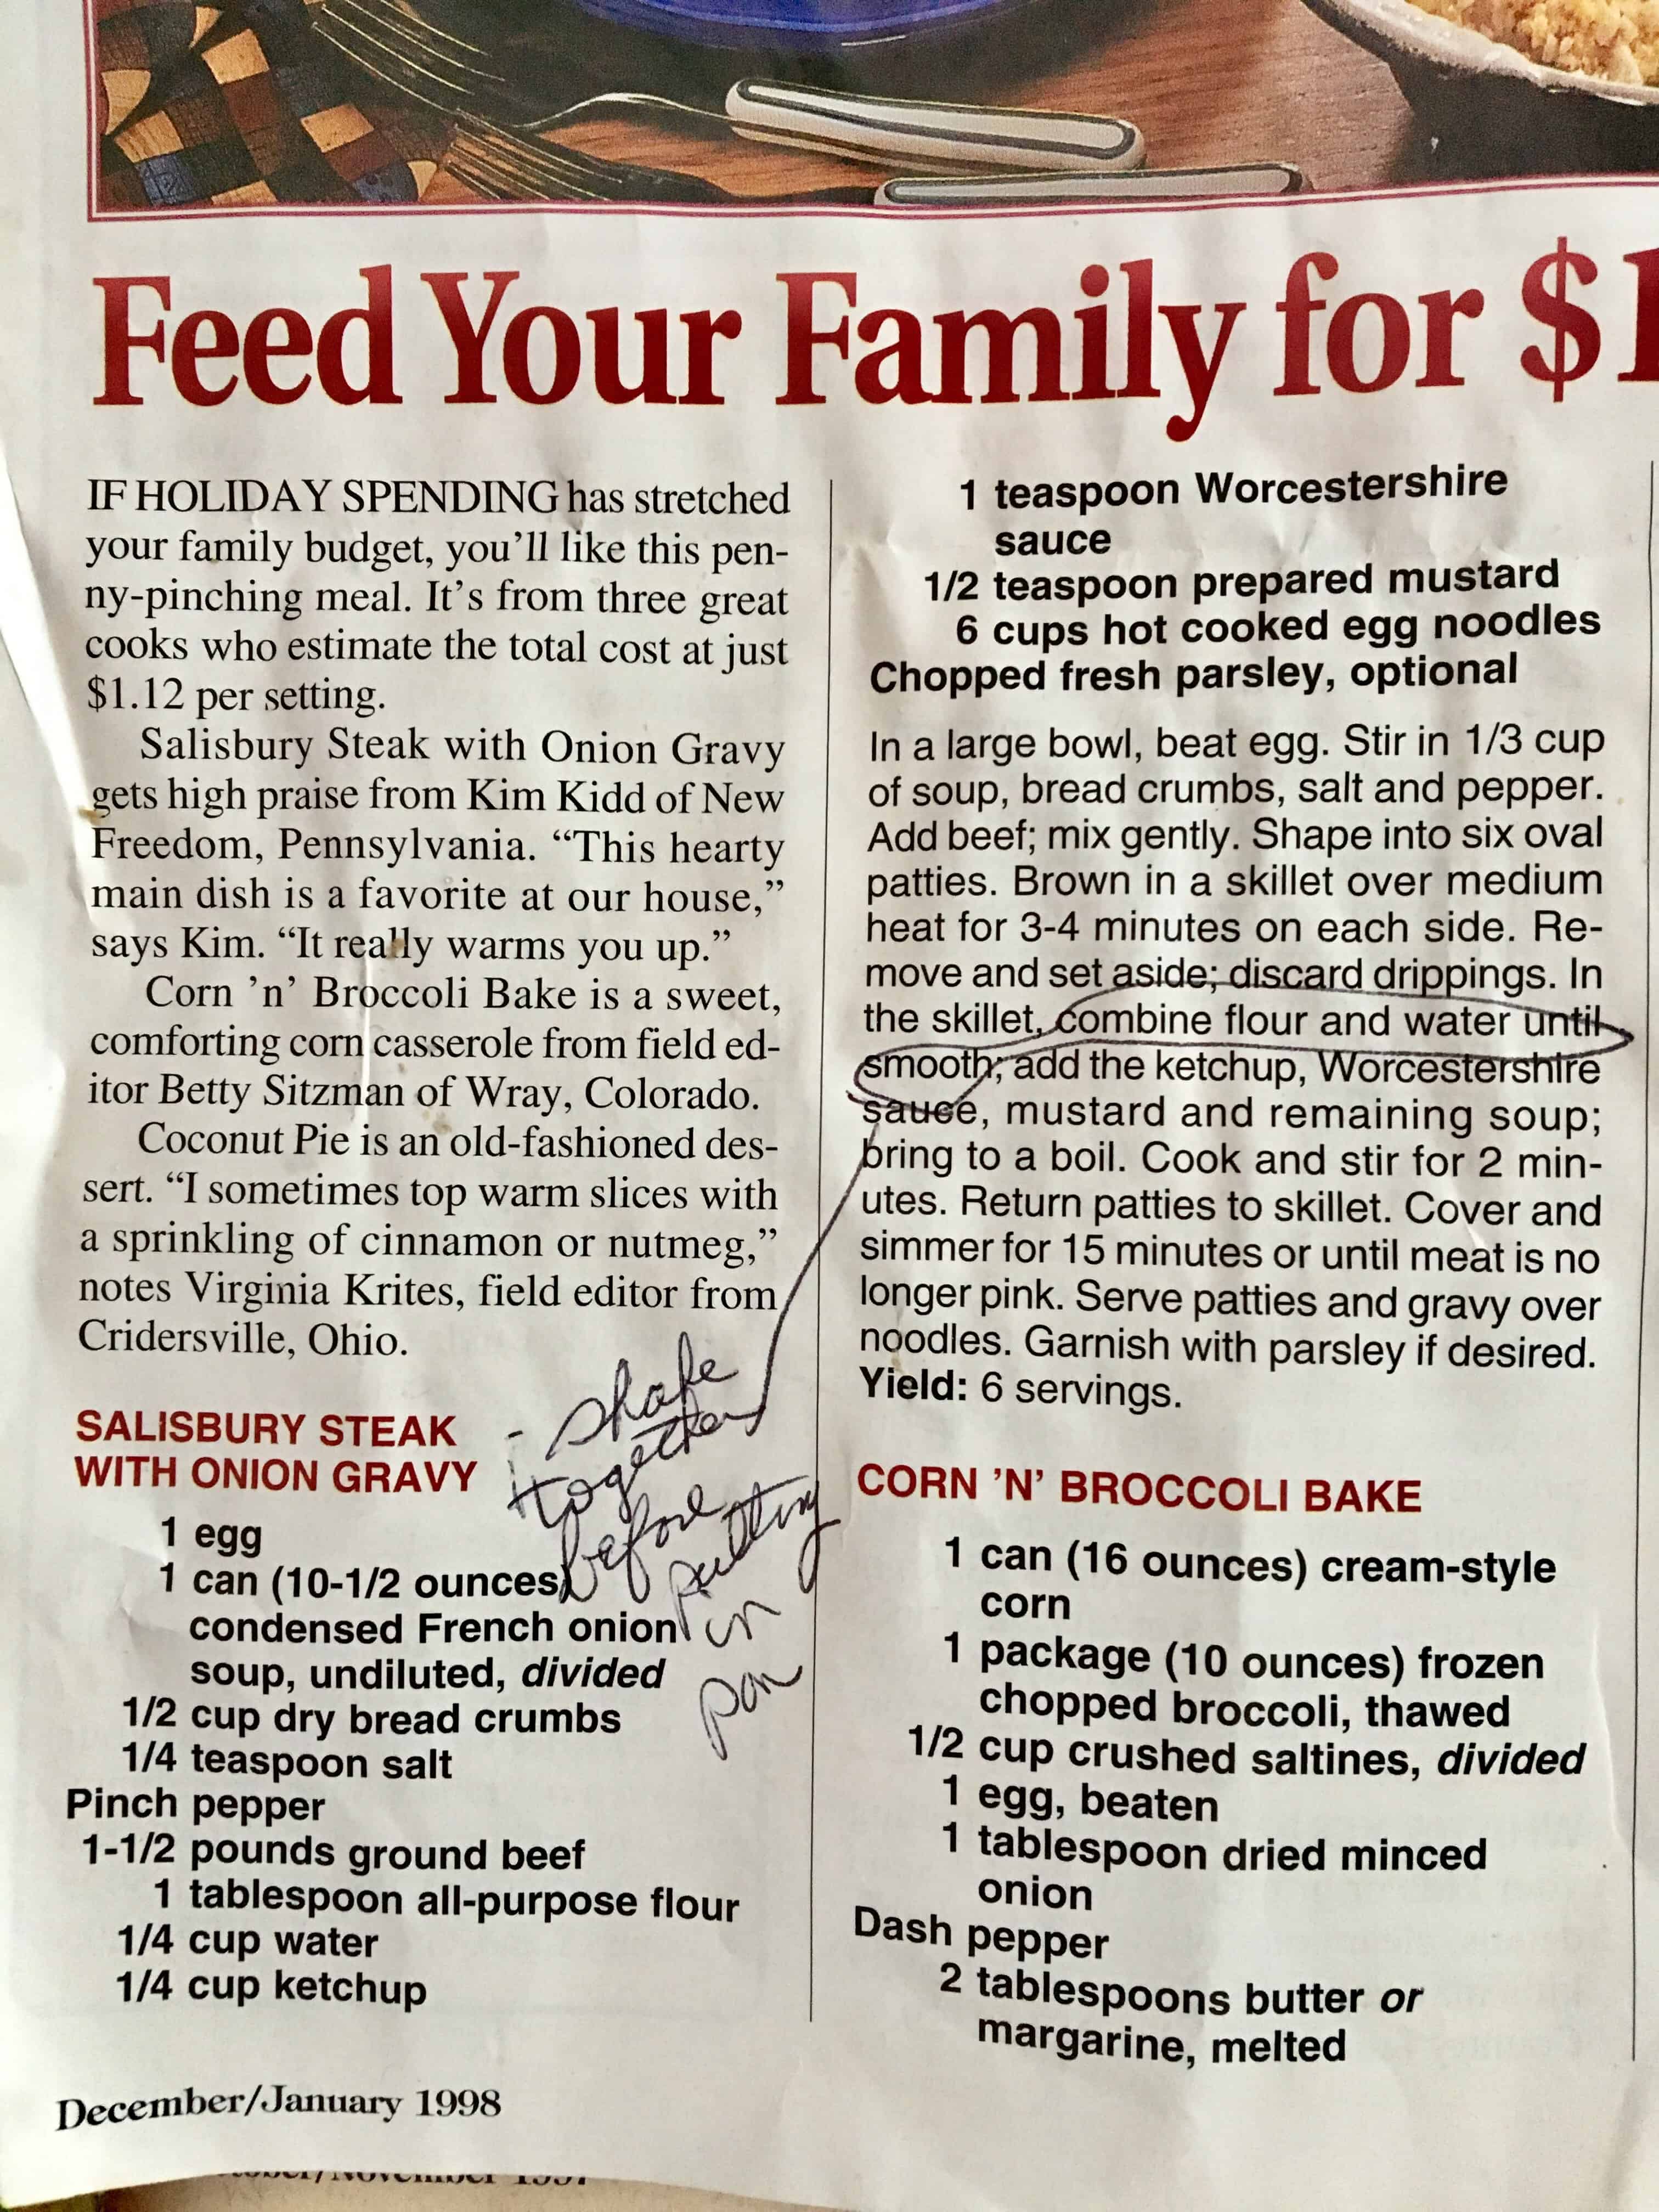 Feed Your Family for $1
IF HOLIDAY SPENDING has stretched
your family budget, you'll like this pen-
ny-pinching meal. It's from three great
cooks who estimate the total cost at just
$1.12 per setting.
Salisbury Steak with Onion Gravy
gets high praise from Kim Kidd of New
Freedom, Pennsylvania. “This hearty
main dish is a favorite at our house,”
says Kim. “It really warms you up.”
Corn ’n’ Broccoli Bake is a sweet,
comforting corn casserole from field ed-
itor Betty Sitzman of Wray, Colorado.
Coconut Pie is an old-fashioned des-
sert. “I sometimes top warm slices with
a sprinkling of cinnamon or nutmeg,”
notes Virginia Krites, field editor from
Cridersville, Ohio.
- shake
together
before
putting
in
pan
SALISBURY STEAK
WITH ONION GRAVY
1 egg
1 can (10-1/2 ounces)
condensed French onion
soup, undiluted, divided
1/2 cup dry bread crumbs
1/4 teaspoon salt
Pinch pepper
1-1/2 pounds ground beef
1 tablespoon all-purpose flour
1/4 cup water
1/4 cup ketchup
1 teaspoon Worcestershire
sauce
1/2 teaspoon prepared mustard
6 cups hot cooked egg noodles
Chopped fresh parsley, optional
In a large bowl, beat egg. Stir in 1/3 cup
of soup, bread crumbs, salt and pepper.
Add beef; mix gently. Shape into six oval
patties. Brown in a skillet over medium
heat for 3-4 minutes on each side. Re-
move and set aside; discard drippings. In
the skillet, combine flour and water until
smooth; add the ketchup, Worcestershire
sauce, mustard and remaining soup;
bring to a boil. Cook and stir for 2 min-
utes. Return patties to skillet. Cover and
simmer for 15 minutes or until meat is no
longer pink. Serve patties and gravy over
noodles. Garnish with parsley if desired.
Yield: 6 servings.
CORN ’N’ BROCCOLI BAKE
1 can (16 ounces) cream-style
corn
1 package (10 ounces) frozen
chopped broccoli, thawed
1/2 cup crushed saltines, divided
1 egg, beaten
1 tablespoon dried minced
onion
Dash pepper
2 tablespoons butter or
margarine, melted
December/January 1998